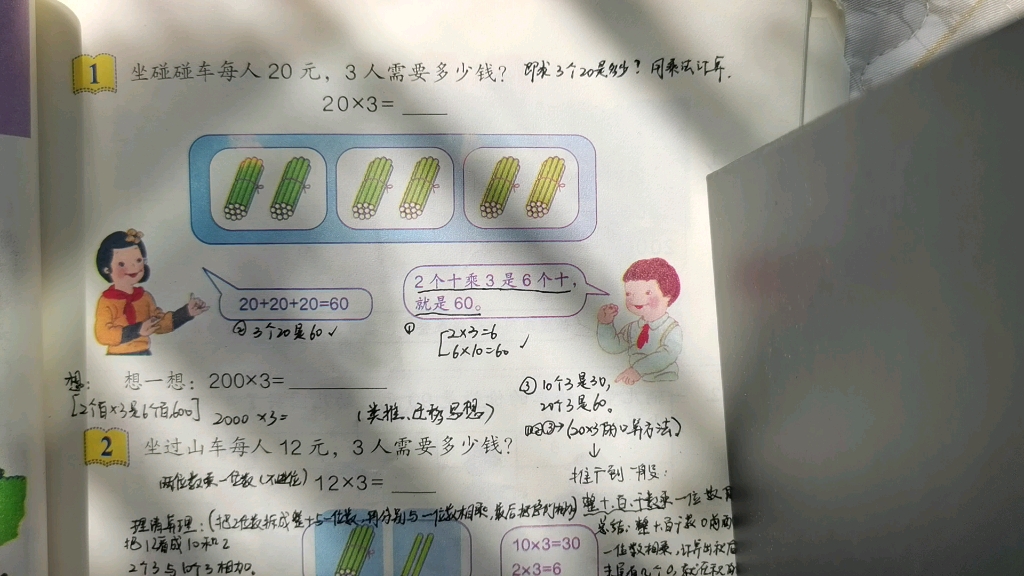 1 坐碰碰车每人 20 元，3 人需要多少钱？ 即求3个20是多少？用乘法计算.
20×3=____
20+20+20=60
2 个十乘 3 是 6 个十，
就是 60。
② 3个20是60 ✓
① [2×3=6
6×10=60 ✓
想： 想一想：200×3=________
[2个百×3是6个百,600] 2000×3= (类推、迁移思想)
③ 10个3是30，
20个3是60。
①②③→(20×3的口算方法)
↓
推广到一般：
2 坐过山车每人 12 元，3 人需要多少钱？
两位数乘一位数(不进位) 12×3=____
整十、百、千数乘一位数
理清算理：(把2位数拆成整十与一位数,再分别与一位数相乘,最后把
总结：整十百千数0前面
把12看成10和2
一位数相乘,
2个3与10个3相加。
10×3=30
2×3=6